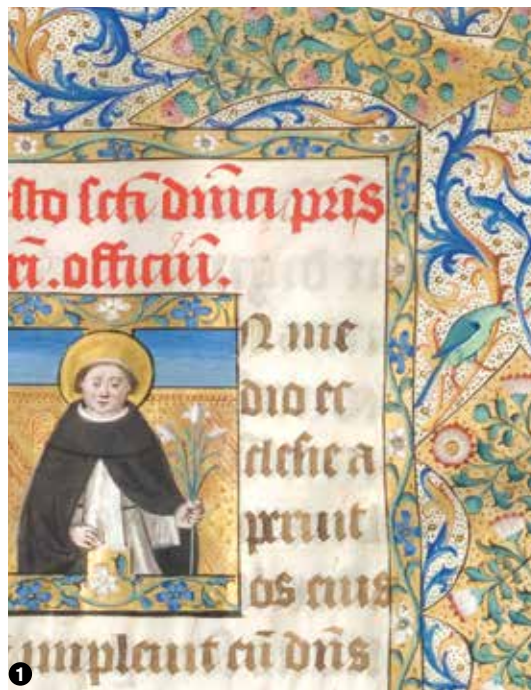 sto sc̄ti dn̄ici pr̄is
rī. officiū.
N me
dio ec
clesie a
peruit
os eius
impleuit eū dn̄s
1